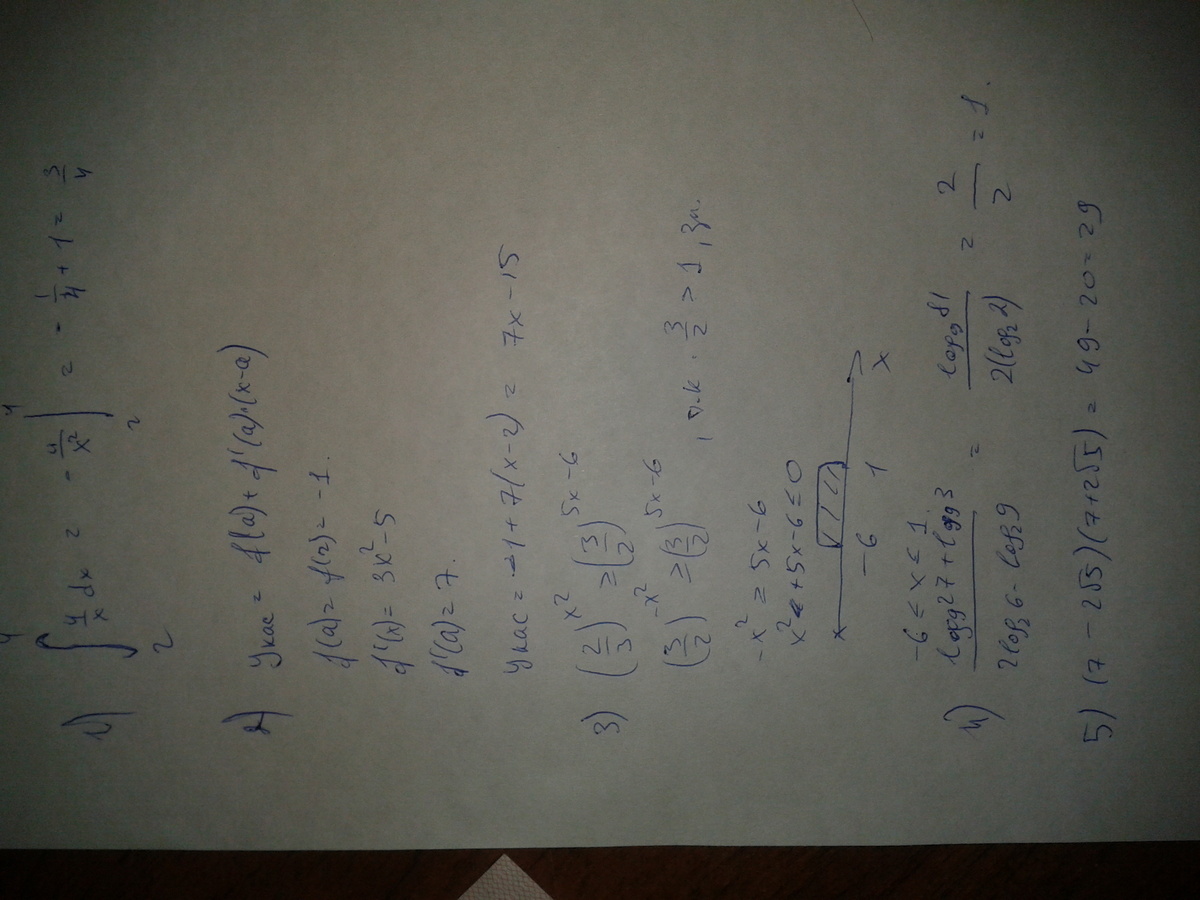 1) ∫₂⁴ 4/x dx = -4/x² |₂⁴ = -1/4 + 1 = 3/4
2) Yкас = f(a) + f'(a)·(x-a)
f(a) = f(2) = -1.
f'(x) = 3x² - 5
f'(a) = 7.
Yкас = -1 + 7(x-2) = 7x - 15
3) (2/3)^x² ≥ (3/2)^5x-6
(3/2)^-x² ≥ (3/2)^5x-6, т.к. 3/2 > 1, зн.
-x² ≥ 5x - 6
x² + 5x - 6 ≤ 0
x
-6 1 x
-6 ≤ x ≤ 1.
4) log₉27 + log₉3 / 2log₂6 - log₂9 = log₉81 / 2(log₂2) = 2/2 = 1.
5) (7 - 2√5)(7 + 2√5) = 49 - 20 = 29